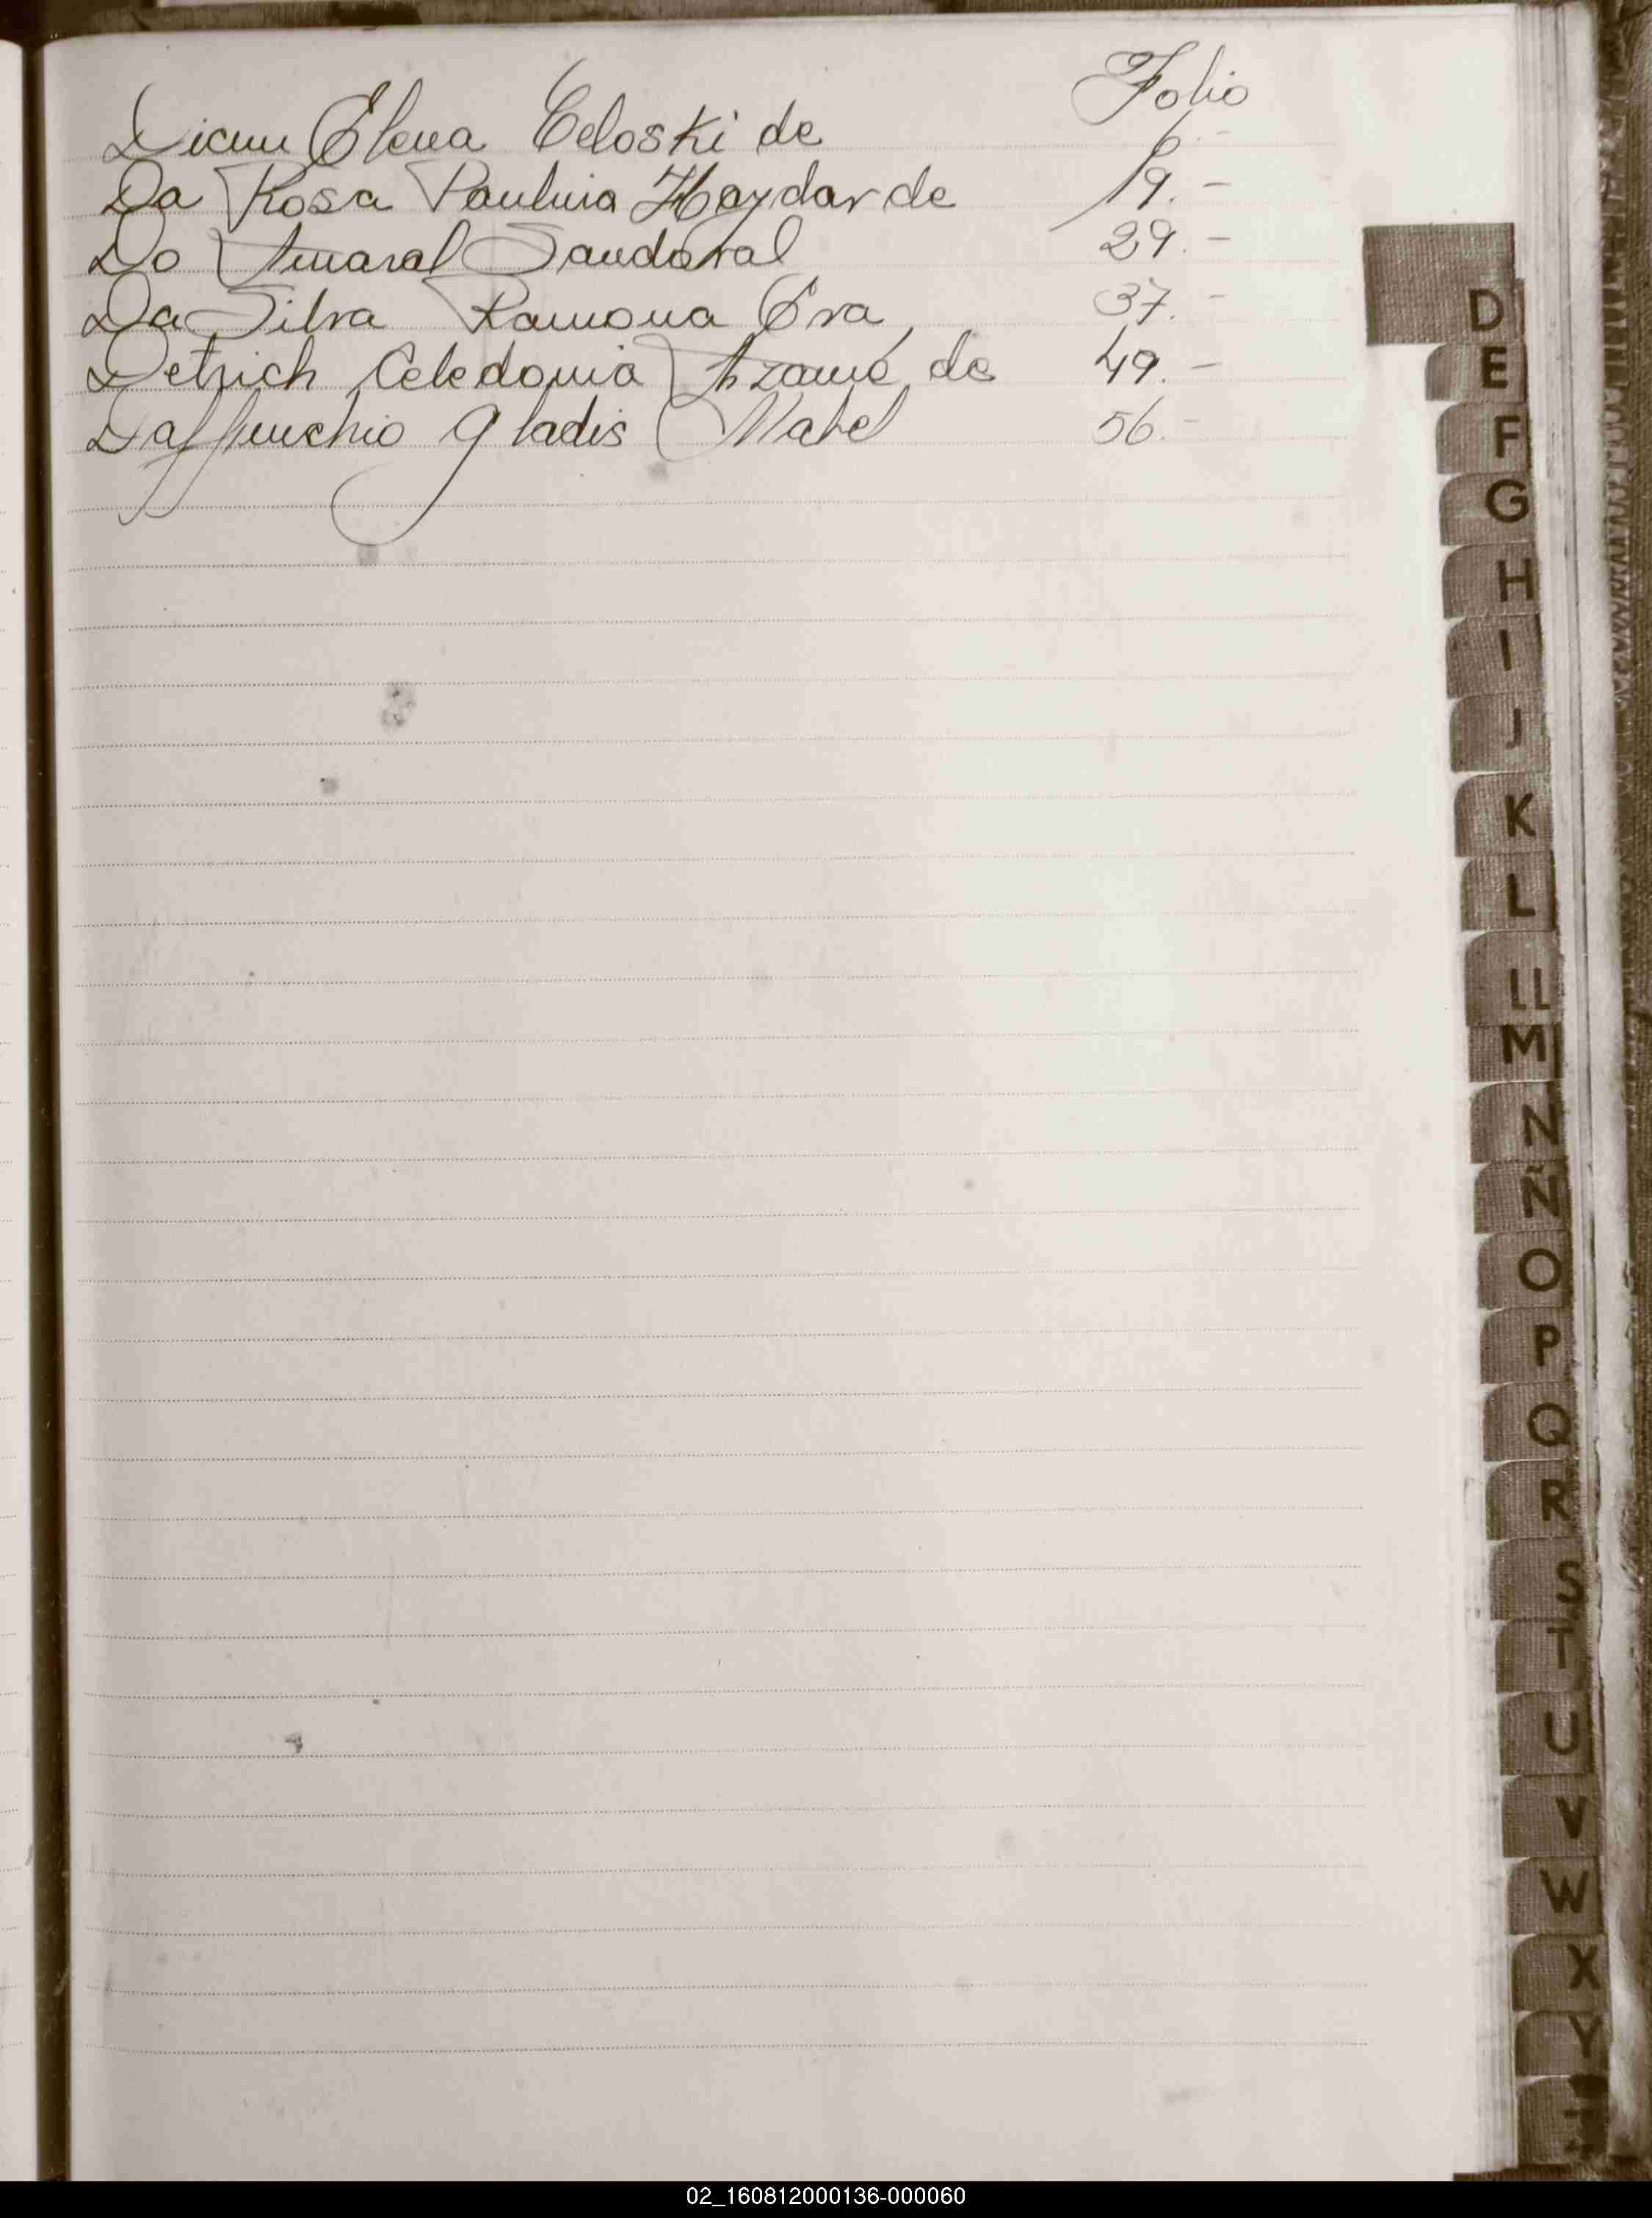 Folio
Elena Celoski de 6.-
Da Rosa Paulina Haydar de 19.-
Do Amaral Sandoval 29.-
Da Silva Ramona Eva 37.-
Detrich Celedonia Azamé de 49.-
Daffunchio Gladis Mabel 56.-
D
E
F
G
H
I
J
K
L
LL
M
N
Ñ
O
P
Q
R
S
T
U
V
W
X
Y
Z
02_160812000136-000060